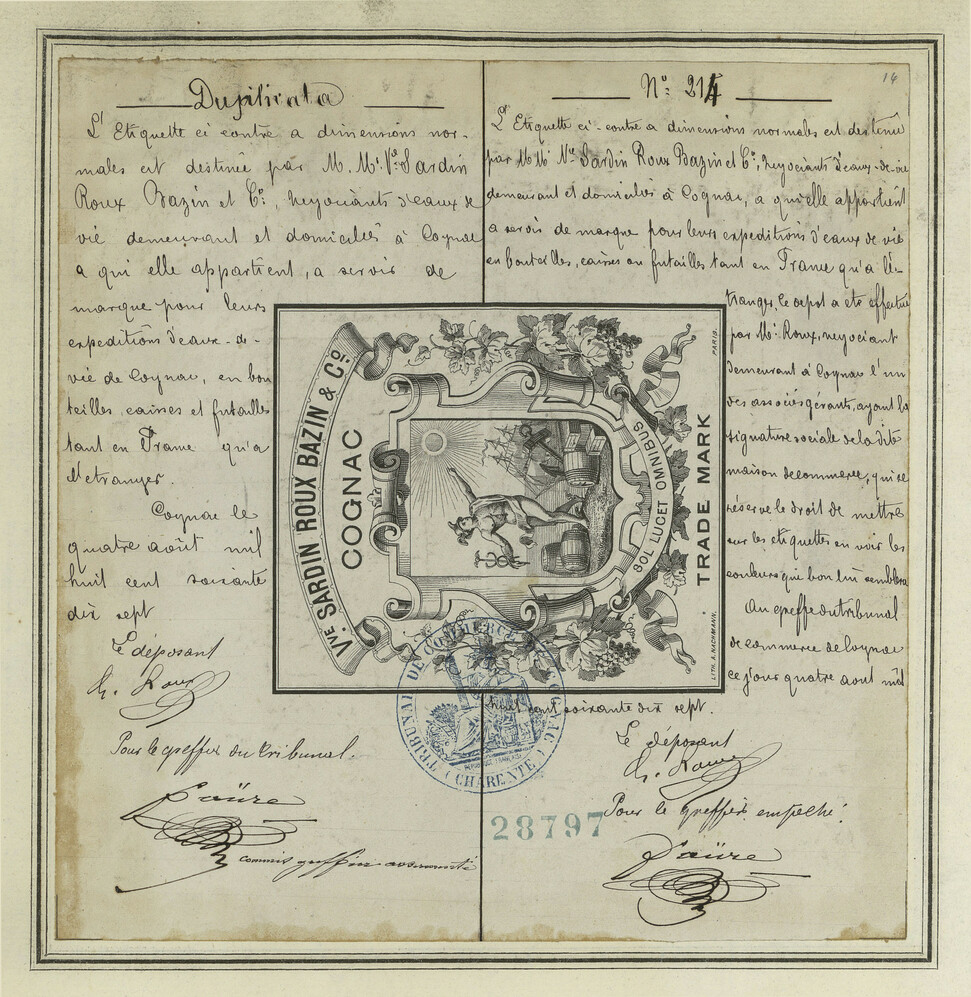 Duplicata
L'Etiquette ci contre a dimensions nor-
males est destinée par M. Mrs Ve Sardin
Roux Bazin et Co, negociants d'eaux de
vie demeurant et domiciliés à Cognac
a qui elle appartient, a servir de
marque pour leurs
expeditions d'eaux-de-
vie de Cognac, en bou
teilles, caisses et futailles
tant en France qu'a
l'etranger.
Cognac le
quatre août mil
huit cent soixante
dix sept
Le déposant
h. Roux
Pour le greffier du tribunal.
Paüre
commis greffier assermenté
No 214
14
L'Etiquette ci-contre a dimensions normales est destinée
par MM Ve Sardin Roux Bazin et Co, negociants d'eaux-de-vie
demeurant et domiciliés à Cognac, a qu'elle appartient
a servir de marque pour leurs expeditions d'eaux de vie
en bouteilles, caisses ou futailles tant en France qu'a l'é-
tranger, le depot a été effectué
par Mr Roux, negociant
demeurant à Cognac l'un
des associés gérants, ayant la
signature sociale de la dite
maison de commerce, qui se
réserve le droit de mettre
sur les etiquettes en voir les
couleurs que bon lui semblera
Au greffe du tribunal
de commerce de Cognac
ce jour quatre aout mil
huit cent soixante dix sept.
Le déposant
h. Roux
Pour le greffier empeché:
Paüre
VVE. SARDIN ROUX BAZIN & Co.
COGNAC
SOL LUCET OMNIBUS
TRADE MARK
LITH. A. NACHMANN.
PARIS.
TRIBUNAL DE COMMERCE DE COGNAC
(CHARENTE)
28797